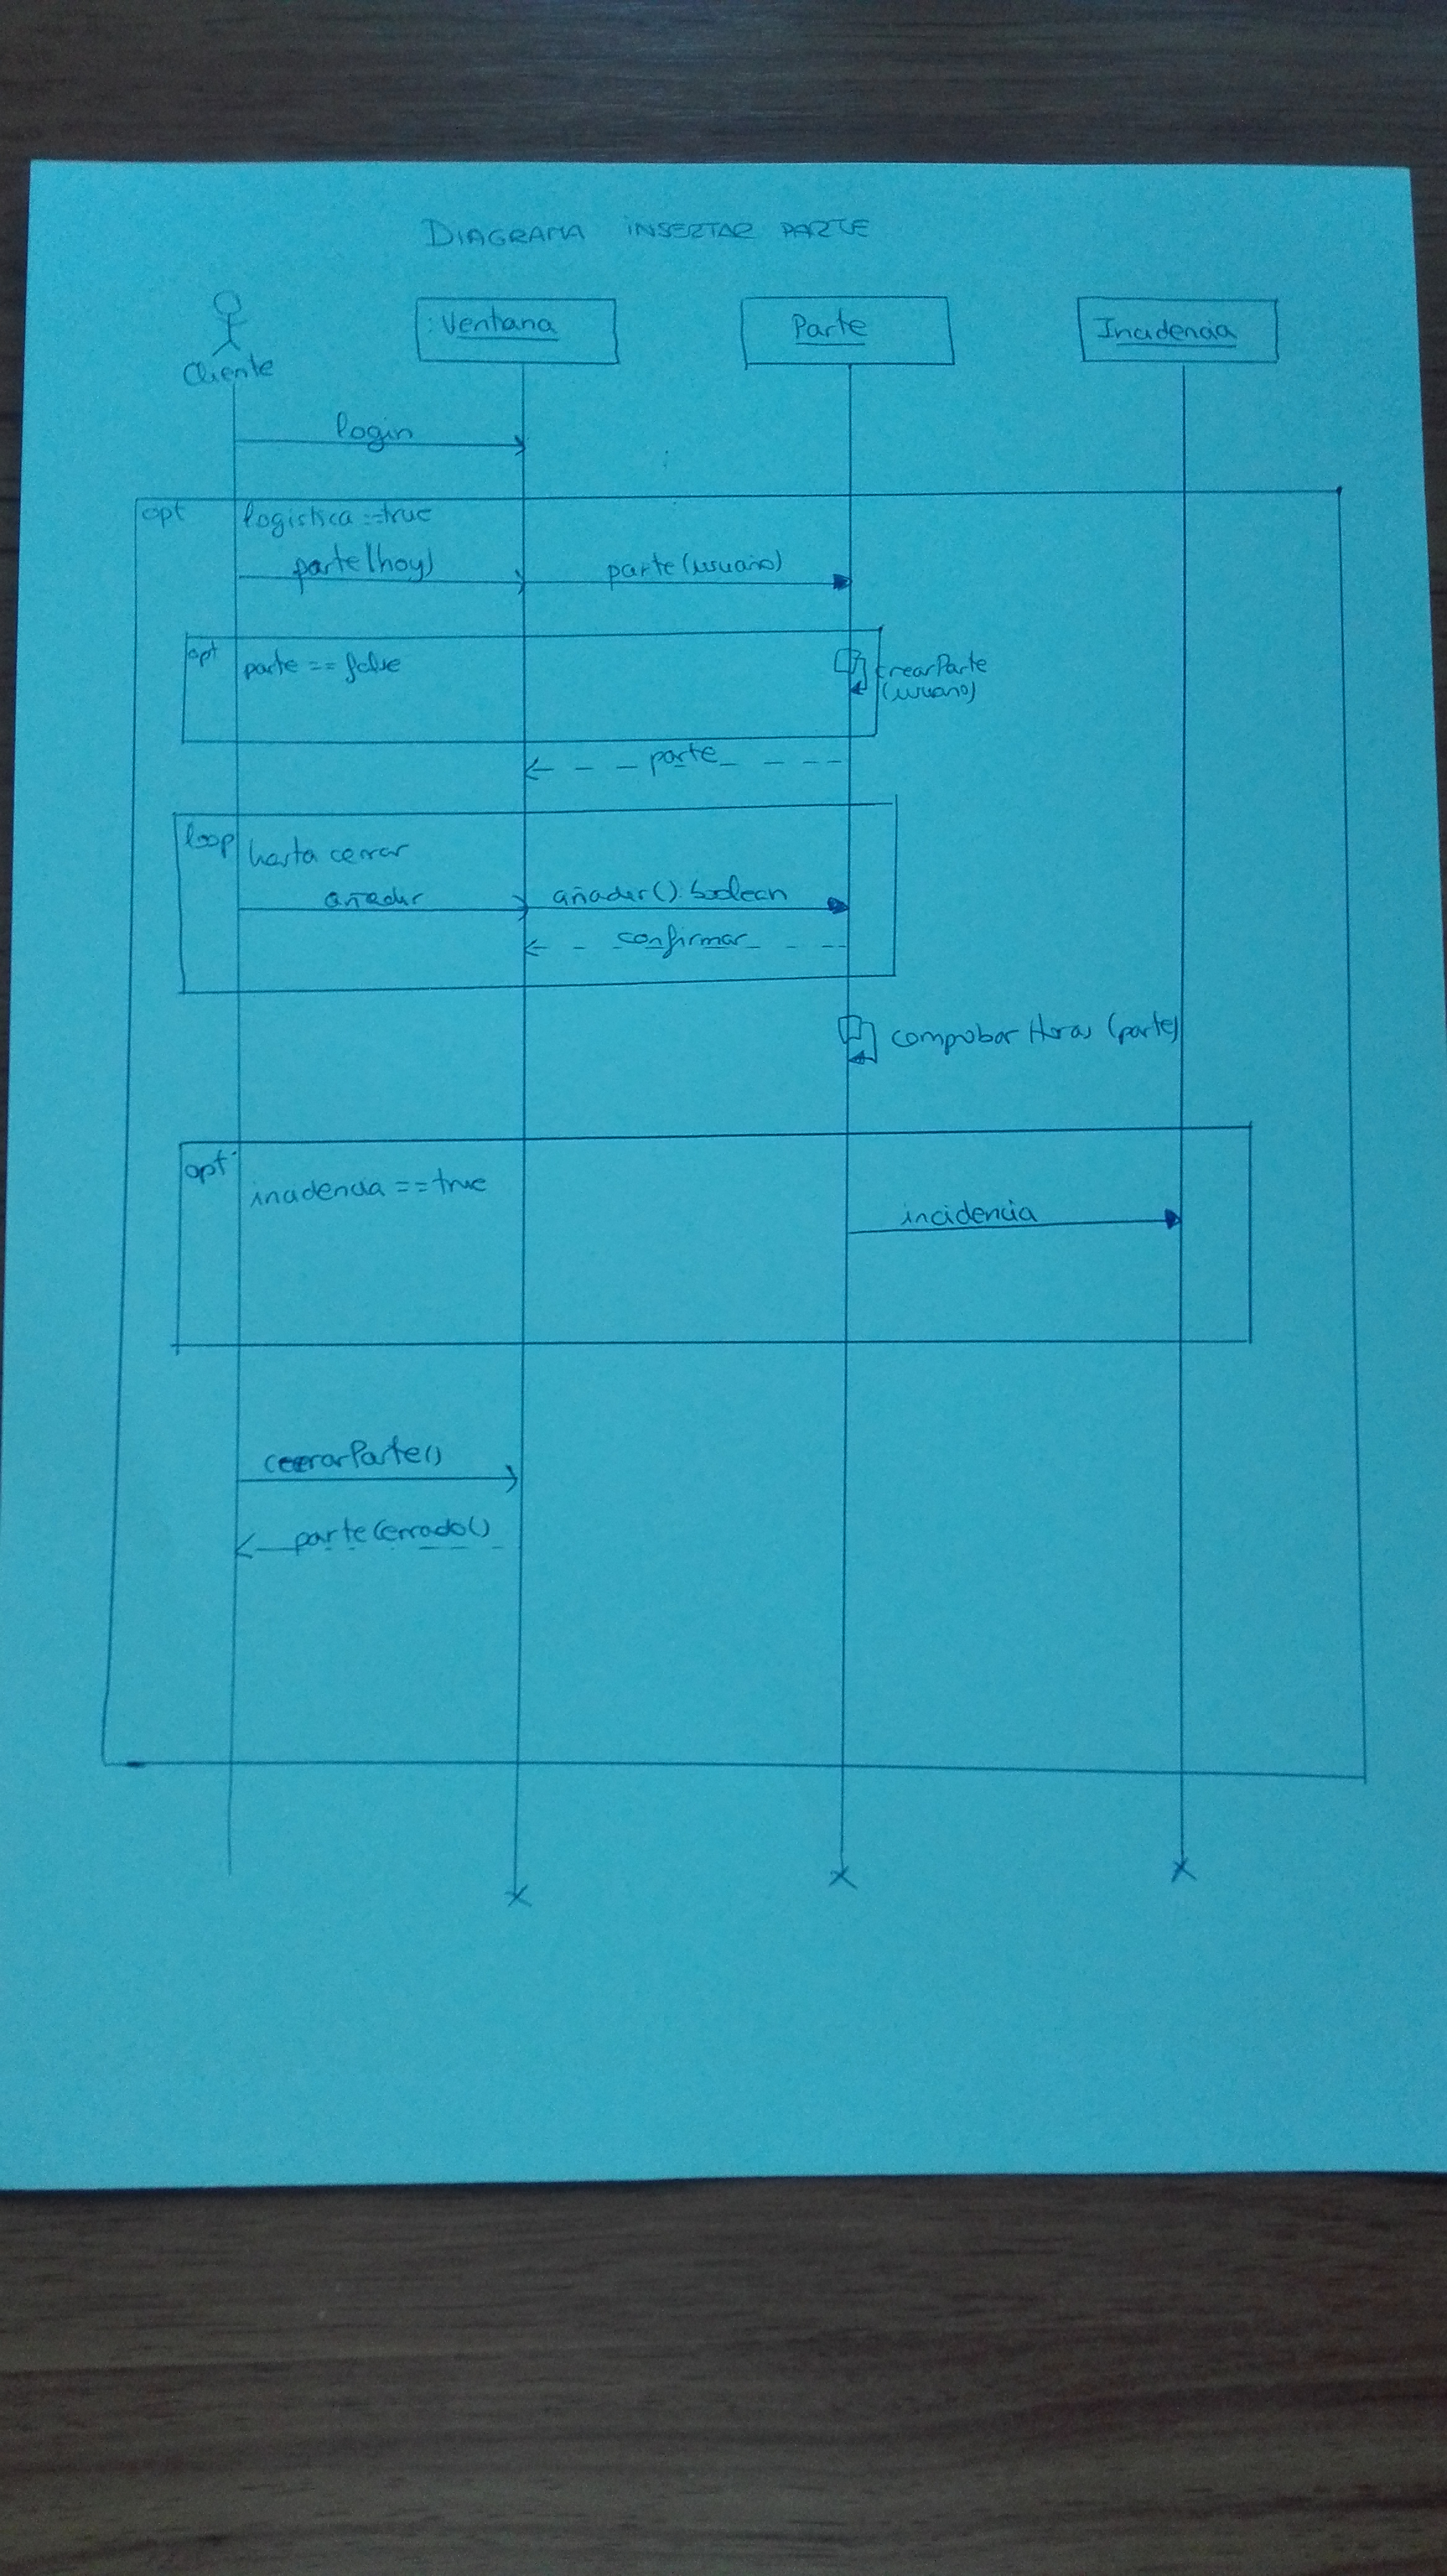 DIAGRAMA INSERTAR PARTE
:Ventana
Parte
Incidencia
Cliente
login
opt
logistica ==true
parte(hoy)
parte(usuario)
opt
parte == false
crearParte
(usuario)
parte
loop
hasta cerrar
añadir
añadir():boolean
confirmar
comprobar Horas (parte)
opt
incidencia ==true
incidencia
cerrarParte()
parteCerrado()